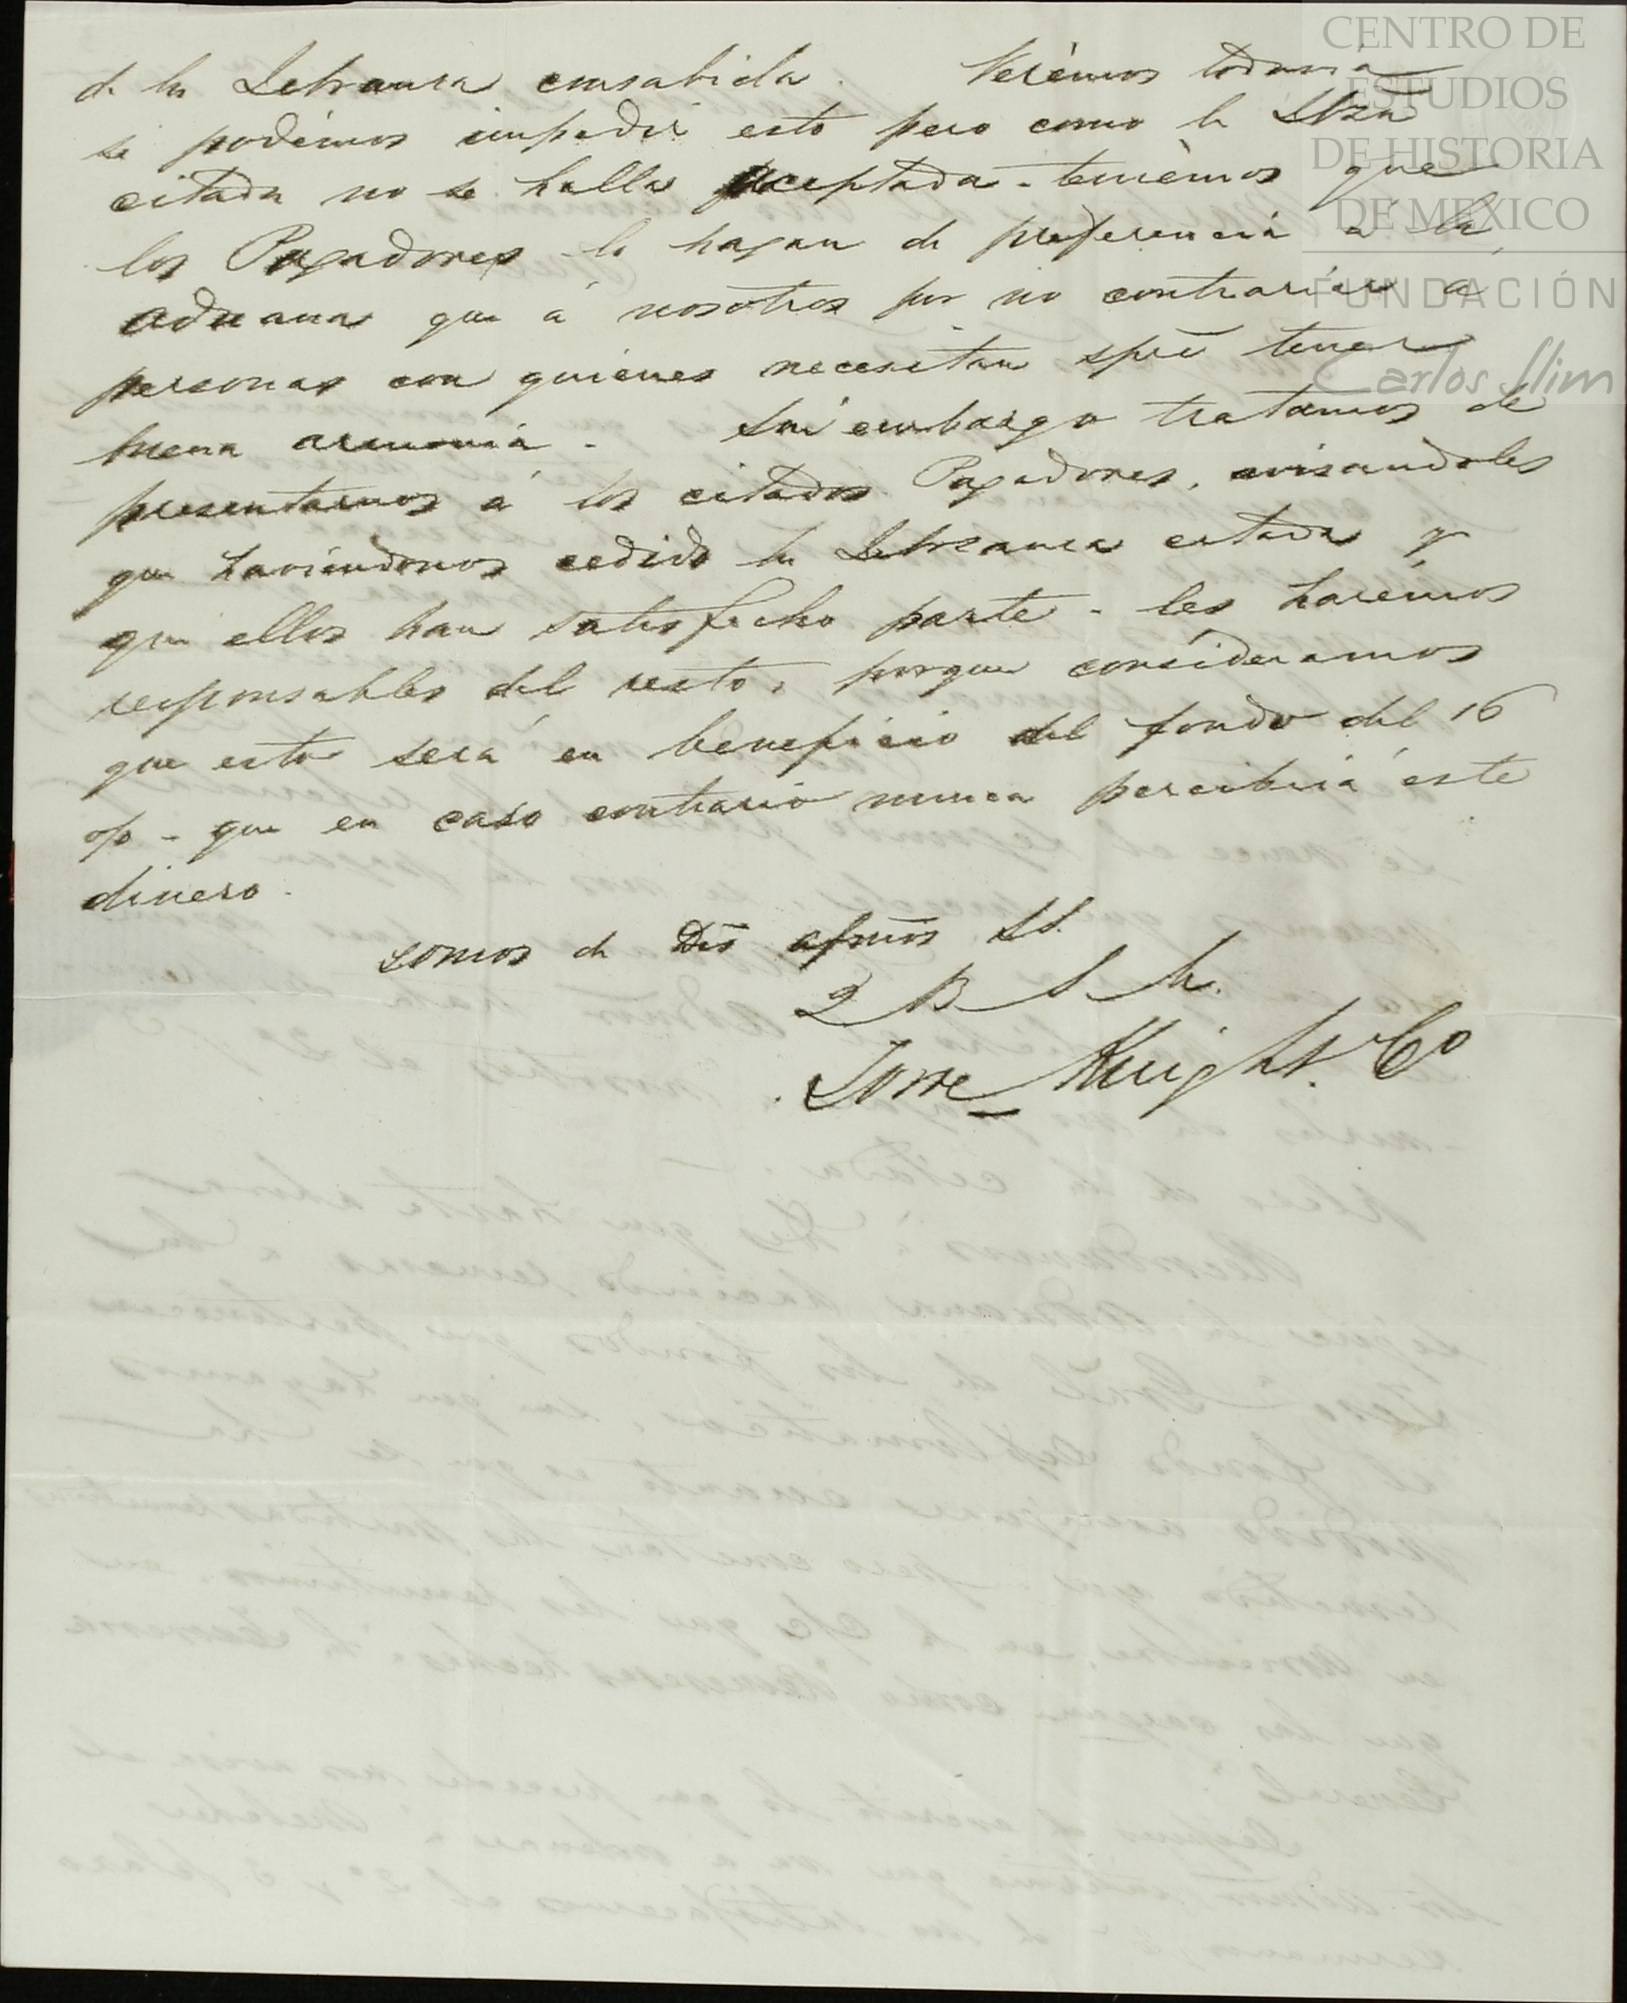 de la Libranza consabida. Verémos todavia
si podémos impedir esto pero como la Lbza
citada no se halla aceptada - temémos que
los Pagadores la hagan de preferencia a la
Aduana que á nosotros por no contrariar a
personas con quienes necesitan spre tener
buena armonia. Sin embargo tratamos de
presentarnos á los citados Pagadores, avisandoles
que haviendonos cedido la Libranza citada y
que ellos han satisfecho parte - les harémos
responsables del resto, porque consideramos
que esto será en beneficio del fondo del 16
o/o - que en caso contrario nunca percibiria este
dinero.
somos de Vds afmos SS.
Q B S M.
Torre Knight. Co
CENTRO DE
ESTUDIOS
DE HISTORIA
DE MEXICO
FUNDACIÓN
Carlos Slim